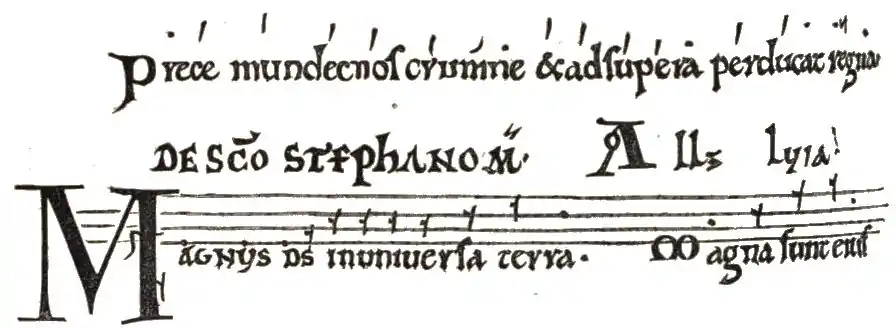 Prece mundet nos crimine & ad supera perducat regna.
DE SCO STEPHANO M. All lyia
Magnus ds in universa terra. Magna sunt eius